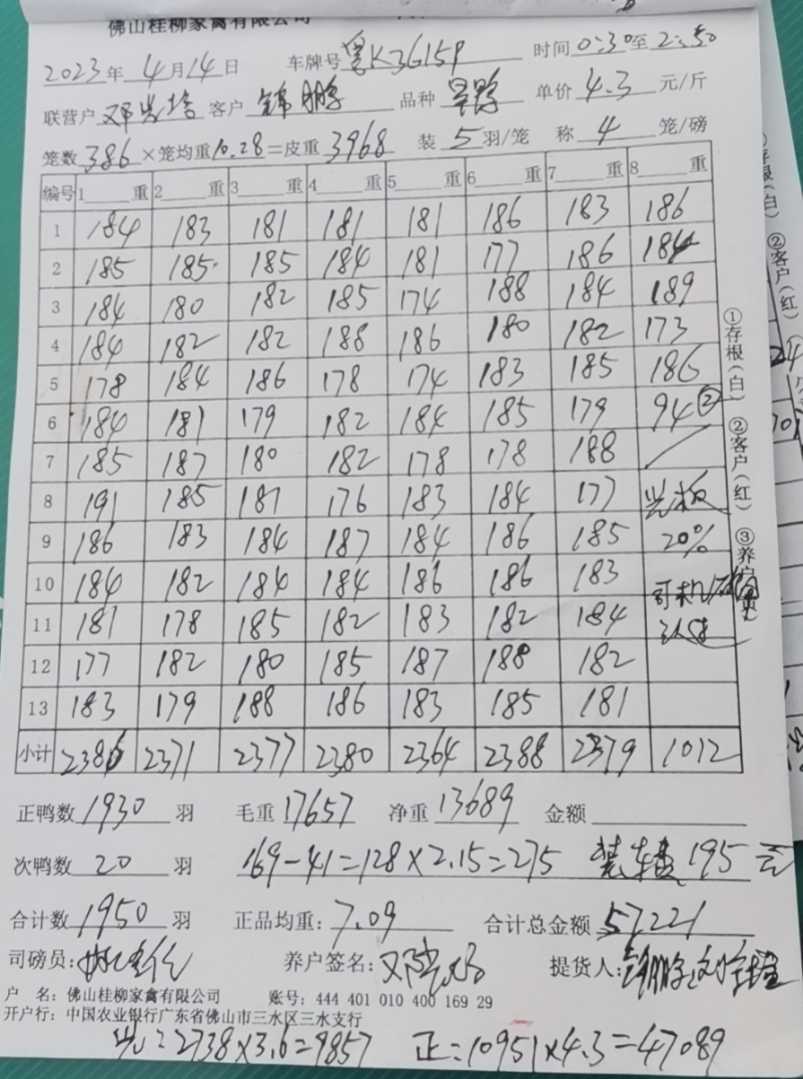 佛山桂柳家禽有限公司
2023年4月14日 车牌号粤K3G15P 时间0:30至2:50
联营户 客户锦鹏 品种 单价4.3元/斤
笼数386×笼均重10.28=皮重3968 装5羽/笼 称4笼/磅
编号 1重 2重 3重 4重 5重 6重 7重 8重
1 184 183 181 181 181 186 183 186
2 185 185 185 184 181 177 186 184
3 184 180 182 185 174 188 184 189
4 184 182 182 188 186 180 182 173
5 178 184 186 178 174 183 185 186
6 184 181 179 182 184 185 179 94②
7 185 187 180 182 178 178 188
8 191 185 181 176 183 184 177
9 186 183 184 187 184 186 185 20%
10 184 182 184 184 186 186 183
11 181 178 185 182 183 182 184
12 177 182 180 185 187 188 182
13 183 179 188 186 183 185 181
小计 2386 2371 2377 2380 2364 2388 2379 1012
①存根(白) ②客户(红) ③养户
正鸭数1930羽 毛重17657 净重13689 金额
次鸭数20羽 169-41=128×2.15=275 装车费195元
合计数1950羽 正品均重:7.09 合计总金额57221
司磅员: 养户签名: 提货人:
户 名:佛山桂柳家禽有限公司 账号:444 401 010 400 169 29
开户行:中国农业银行广东省佛山市三水区三水支行
2738×3.6=9857 正:10951×4.3=47089